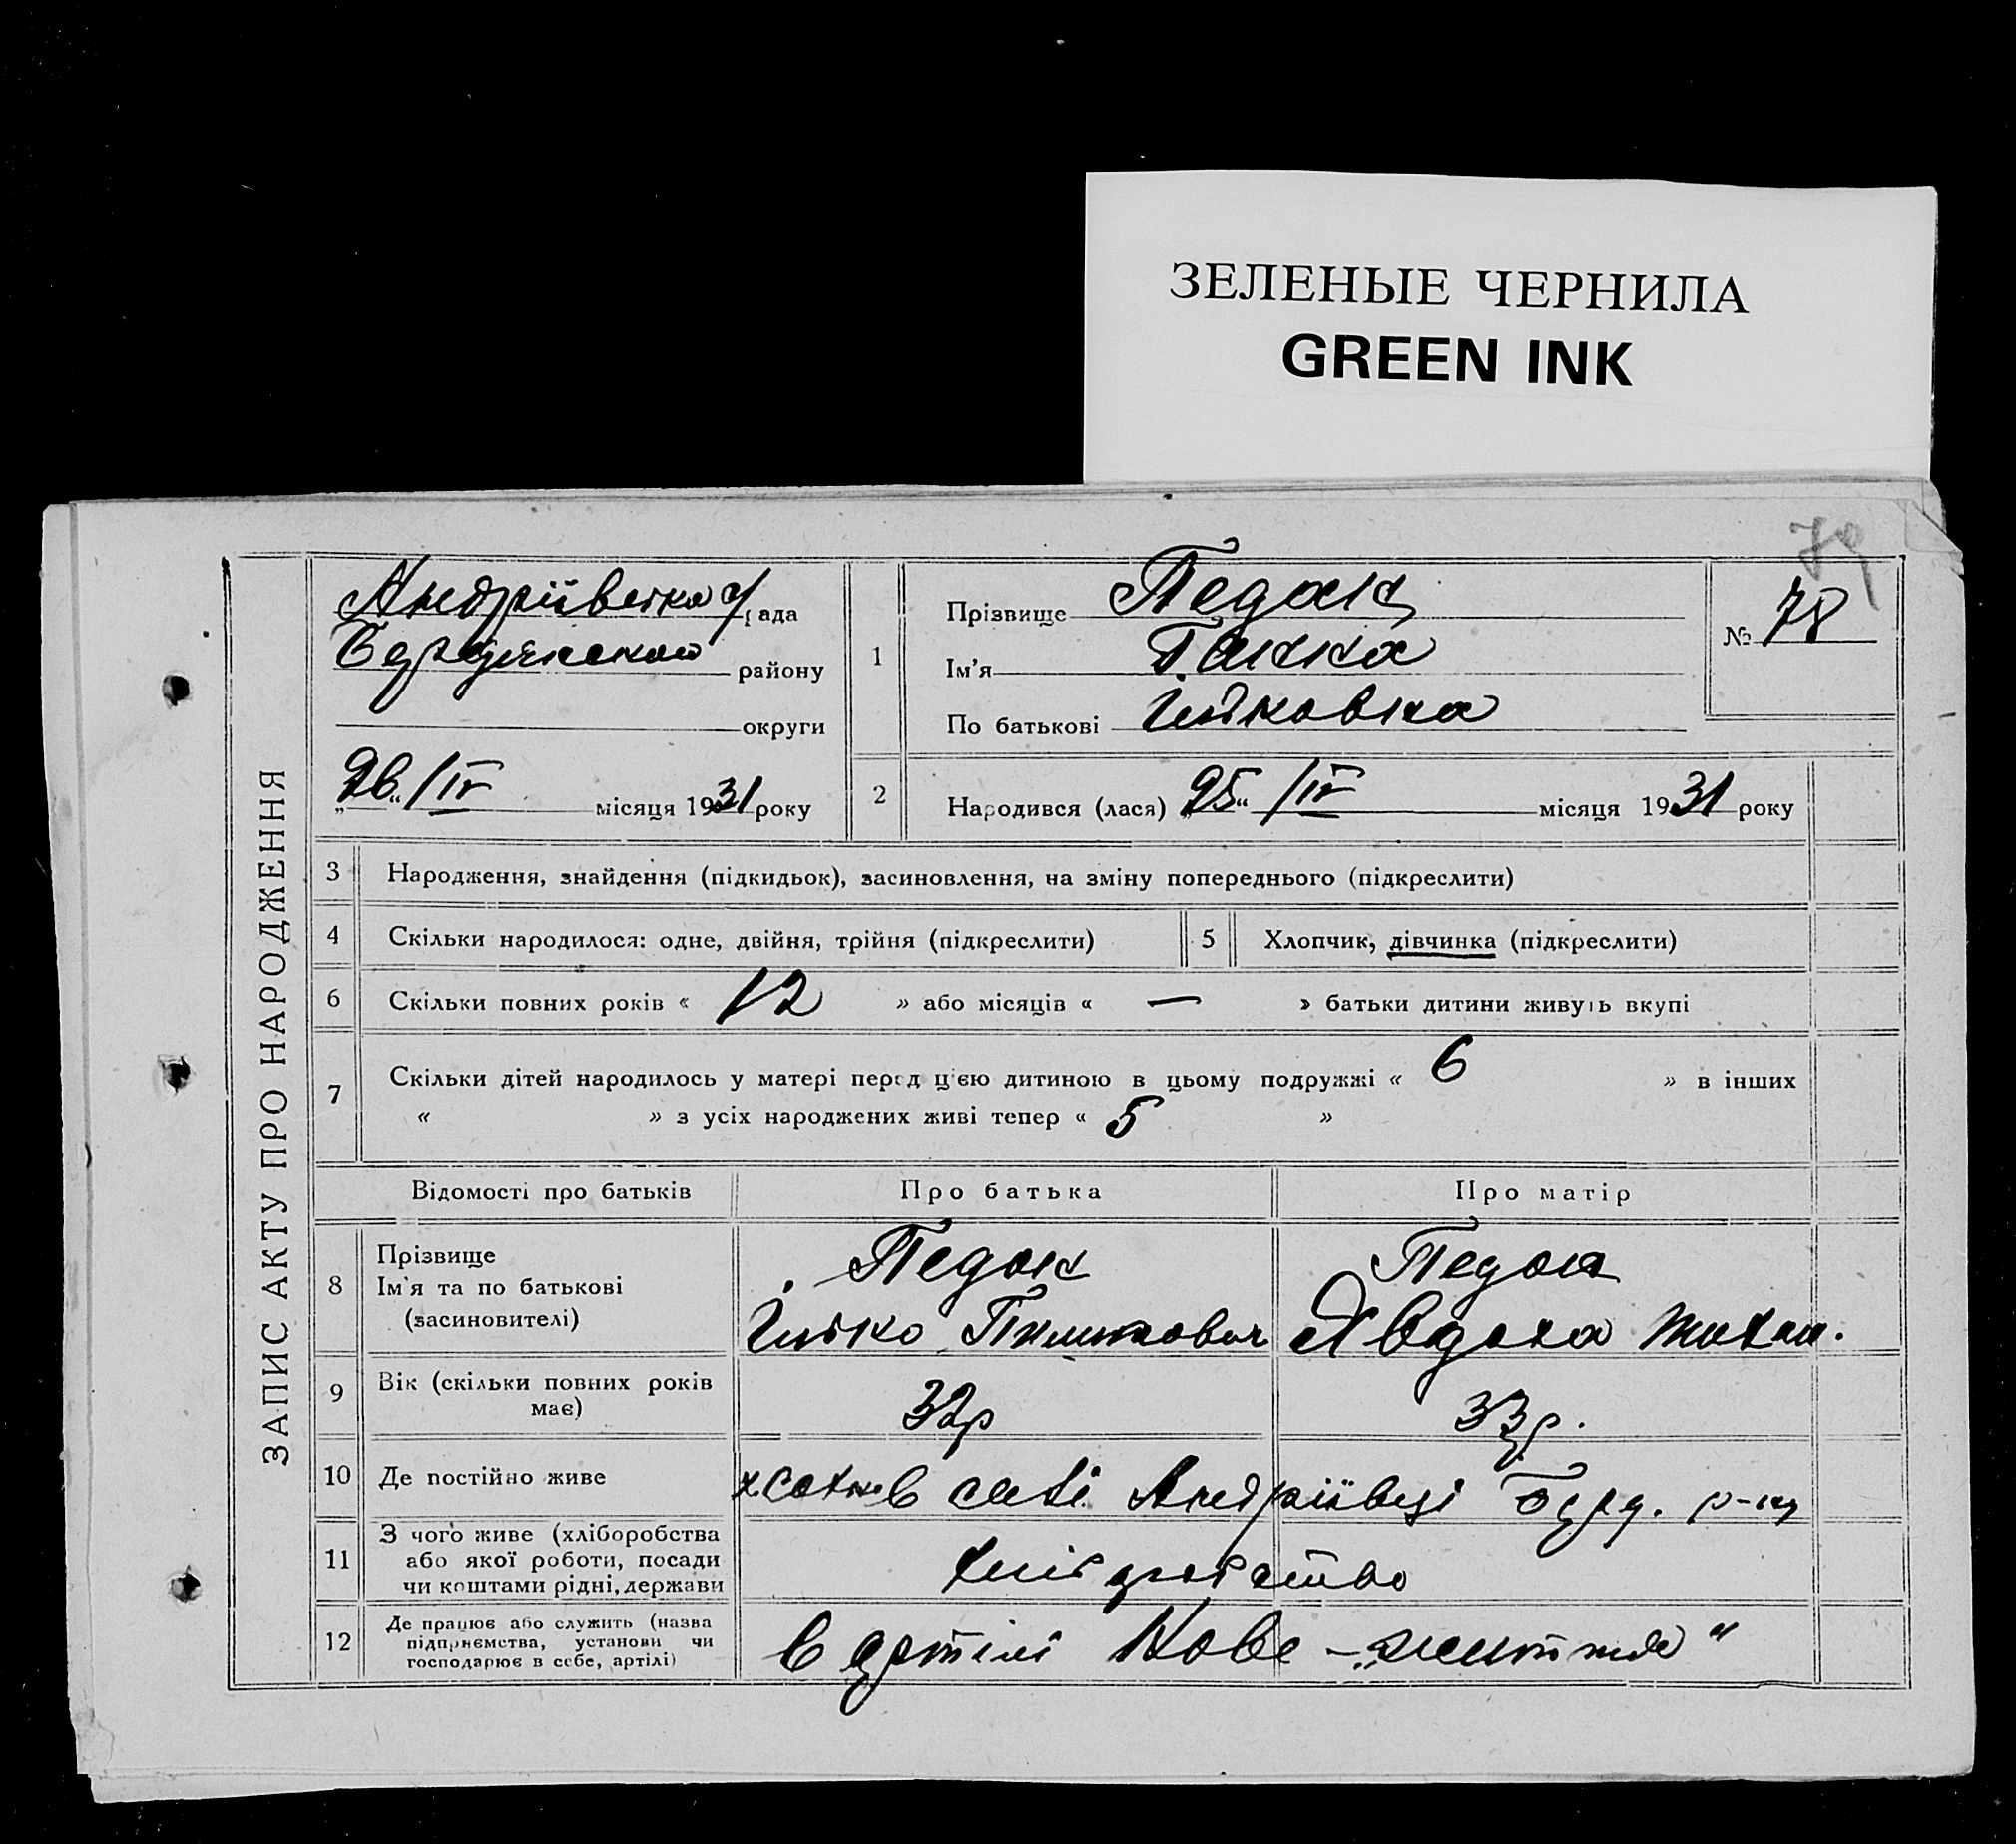 ЗЕЛЕНЫЕ ЧЕРНИЛА
GREEN INK
79
ЗАПИС АКТУ ПРО НАРОДЖЕННЯ
Андріївська с/рада
району
округи
„26“ /IV місяця 1931 року
1
Прізвище Педан
Ім’я Ганна
По батькові
№ 78
2
Народився (лася) „25“ /IV місяця 1931 року
3 Народження, знайдення (підкидьок), засиновлення, на зміну попереднього (підкреслити)
4 Скільки народилося: одне, двійня, трійня (підкреслити)
5 Хлопчик, дівчинка (підкреслити)
6 Скільки повних років « 12 » або місяців « — » батьки дитини живуть вкупі
7 Скільки дітей народилось у матері перед цією дитиною в цьому подружжі « 6 » в інших
« » з усіх народжених живі тепер « 5 »
Відомості про батьків Про батька Про матір
8 Прізвище
Ім’я та по батькові
(засиновителі)
Педан
Педан
Явдоха
9 Вік (скільки повних років
має)
32р
33р.
10 Де постійно живе
в селі Андріївці Берд. р-ну
11 З чого живе (хліборобства
або якої роботи, посади
чи коштами рідні, держави
хліборобство
12 Де працює або служить (назва
підприємства, установи чи
господарює в себе, артілі)
в артілі Нове - „життя“